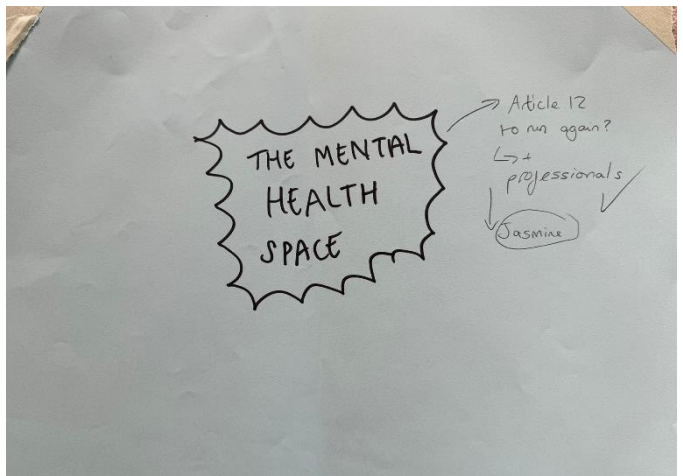 THE MENTAL
HEALTH
SPACE
Article 12
to run again?
↳ +
professionals
Jasmine